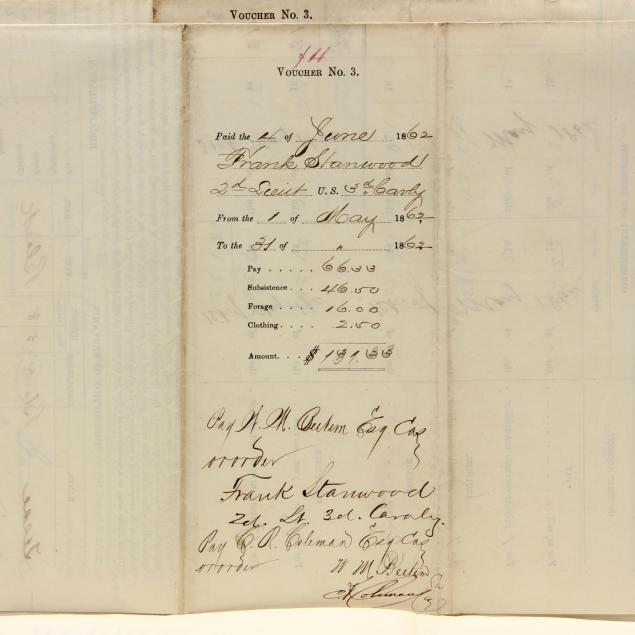 VOUCHER NO. 3.
VOUCHER NO. 3.
Paid the 4 of June 1862
Frank Stanwood
2d Lieut U.S. 3d Cavly
From the 1 of May 1862
To the 31 of " 1862
Pay . . . . . 66.33
Subsistence . . . 46.50
Forage . . . . 16.00
Clothing . . . . 2.50
Amount. . . $ 131.33
Pay W. M. Beelem Esq Cas
or order
Frank Stanwood
2d. Lt. 3d. Cavaly.
Pay C. R. Coleman Esq Cas
or order W M Beelem